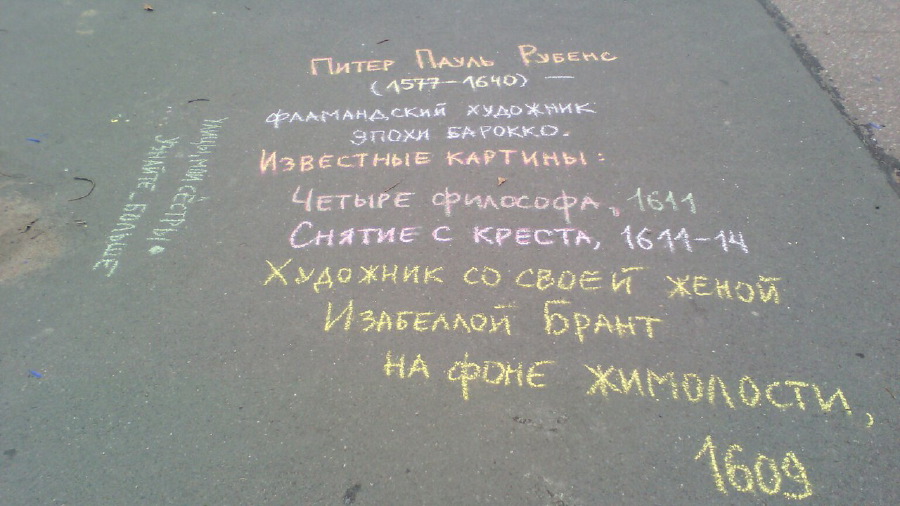 Питер Пауль Рубенс
(1577–1640) —
фламандский художник
эпохи барокко.
Известные картины:
Четыре философа, 1611
Снятие с креста, 1611-14
Художник со своей женой
Изабеллой Брант
на фоне жимолости,
1609
Улицы, мои сёстры.
Узнайте больше